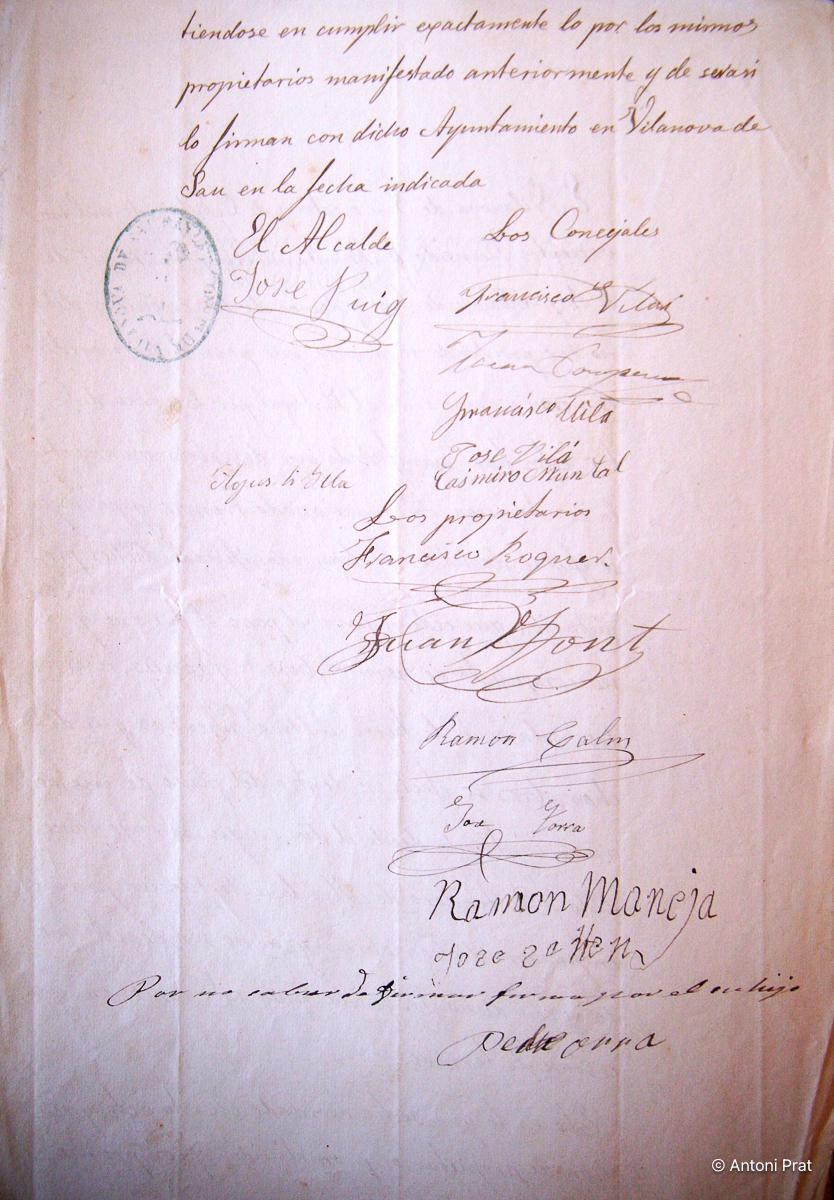 tiendose en cumplir exactamente lo por los mismos
propietarios manifestado anteriormente y de ser asi
lo firman con dicho Ayuntamiento en Vilanova de
Sau en la fecha indicada
El Alcalde
Jose Puig
Los Concejales
Francisco Vilar
Francisco Vila
Jose Vilá
Casimiro Muntal
Agusti Illa
Los propietarios
Francisco Roquer.
Juan Font
Ramon
Ramon Maneja
Jose
Por no saber de firmar firma por el su hijo
© Antoni Prat